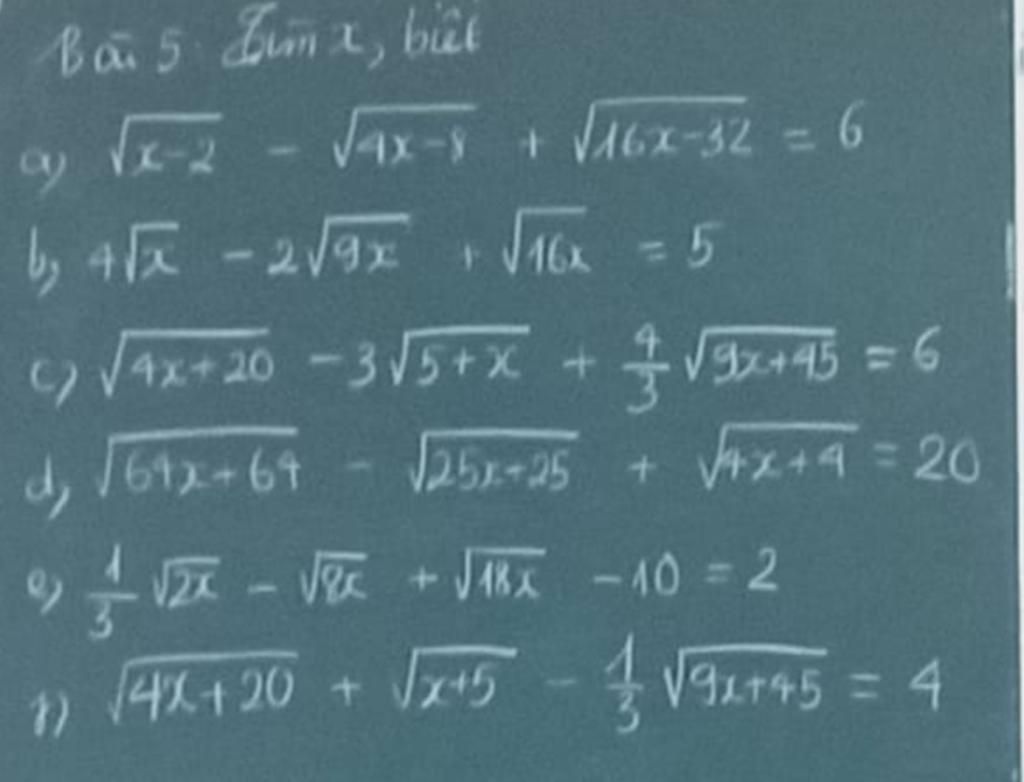 Bài 5: Tìm x, biết
a) √(x-2) - √(4x-8) + √(16x-32) = 6
b) 4√x - 2√(9x) + √(16x) = 5
c) √(4x+20) - 3√(5+x) + 4/3 √(9x+45) = 6
d) √(64x+64) - √(25x+25) + √(4x+4) = 20
e) 1/3 √(2x) - √(8x) + √(18x) - 10 = 2
f) √(4x+20) + √(x+5) - 1/3 √(9x+45) = 4